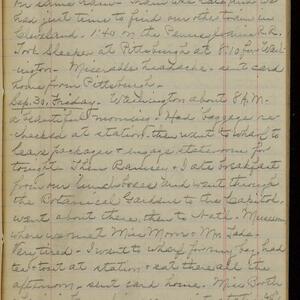 had just time to find our other train in
Cleveland. 1:40 on the Pennsylvania R.R.
Took Sleeper at Pittsburgh at 8:10 for Wash-
ington. Miserable headache. Sent card
home from Pittsburgh.
Sep. 30, Friday. Washington about 8 A.M.
a beautiful morning. Had baggage re-
checked at station, then went to wharf to
leave packages & engage stateroom for
tonight. Then Ramsey & I ate breakfast
from our lunch boxes and went through
the Botanical Gardens to the Capitol.
went about there, then to Natl. Museum
where we met Miss Moore & Mr.
Very tired. I went to wharf for my bag, had
tea & toast at station & sat there all the
afternoon. Sent card home. Miss